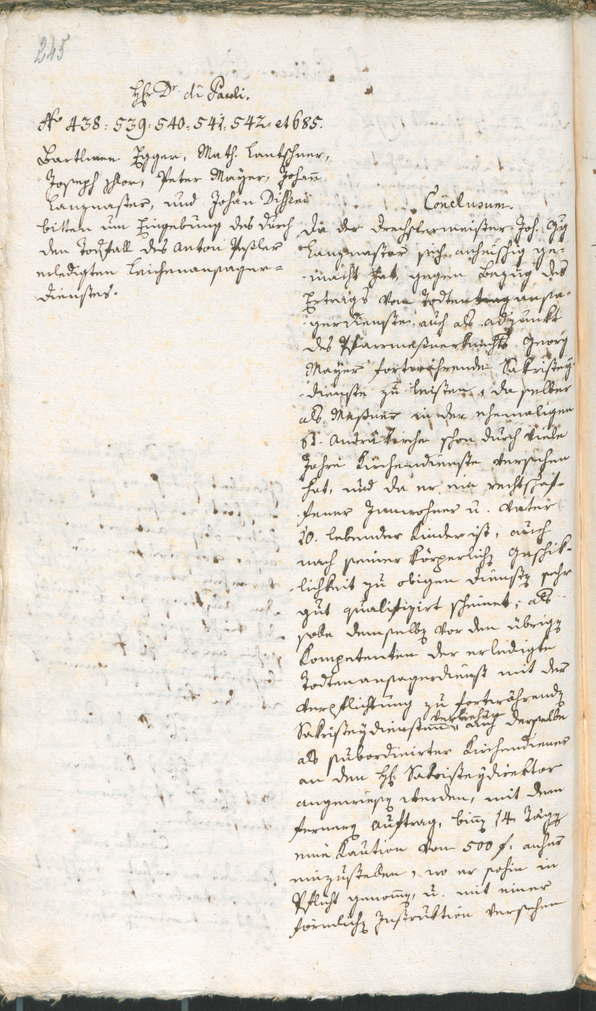 245
H. Dr. di Pauli.
No 438: 539. 540. 541. 542. et 685.
Bartlmee Egger, Math. Lantschner,
Joseph , Peter Mayer, Johann
Langmaster, und Johan
bitten um Eingebung des durch
den Todfall des Anton Peßler
erledigten Leichenansager=
dienstes.
Conclusum.
Da der Drechslermeister Joh. Gg
Langmaster sich anheischig ge=
macht hat, gegen Bezug des
Ertrags vom Todtenansa=
gerdienste, auch als Adjunkt
des Pfarrmeßnerknechts Georg
Mayer fortwährende Sakristey=
dienste zu leisten, da selber
als Meßner in der ehemaligen
St. Andräkirche schon durch viele
Jahre Kirchendienste versehen
hat, und da er ein rechtschaf=
fener Innwohner u. Vater
10. lebender Kinder ist, auch
nach seiner körperlichen Geschik=
lichkeit zu obigen Diensten sehr
gut qualifizirt scheinet; als
solle demselben vor den übrigen
Kompetenten der erledigte
Todtenansagerdienst mit der
Verpflichtung zu fortwährenden
Sakristeydiensten verliehen auch derselbe
als subordinirter Kirchendiener
an den H. Sakristeydirektor
angewiesen werden, mit dem
fernern Auftrag, binnen 14 Tägen
eine Kaution von 500 f. anher
einzustellen, wo er sohin in
Pflicht genommen, u. mit einer
förmlichen Instruktion versehen